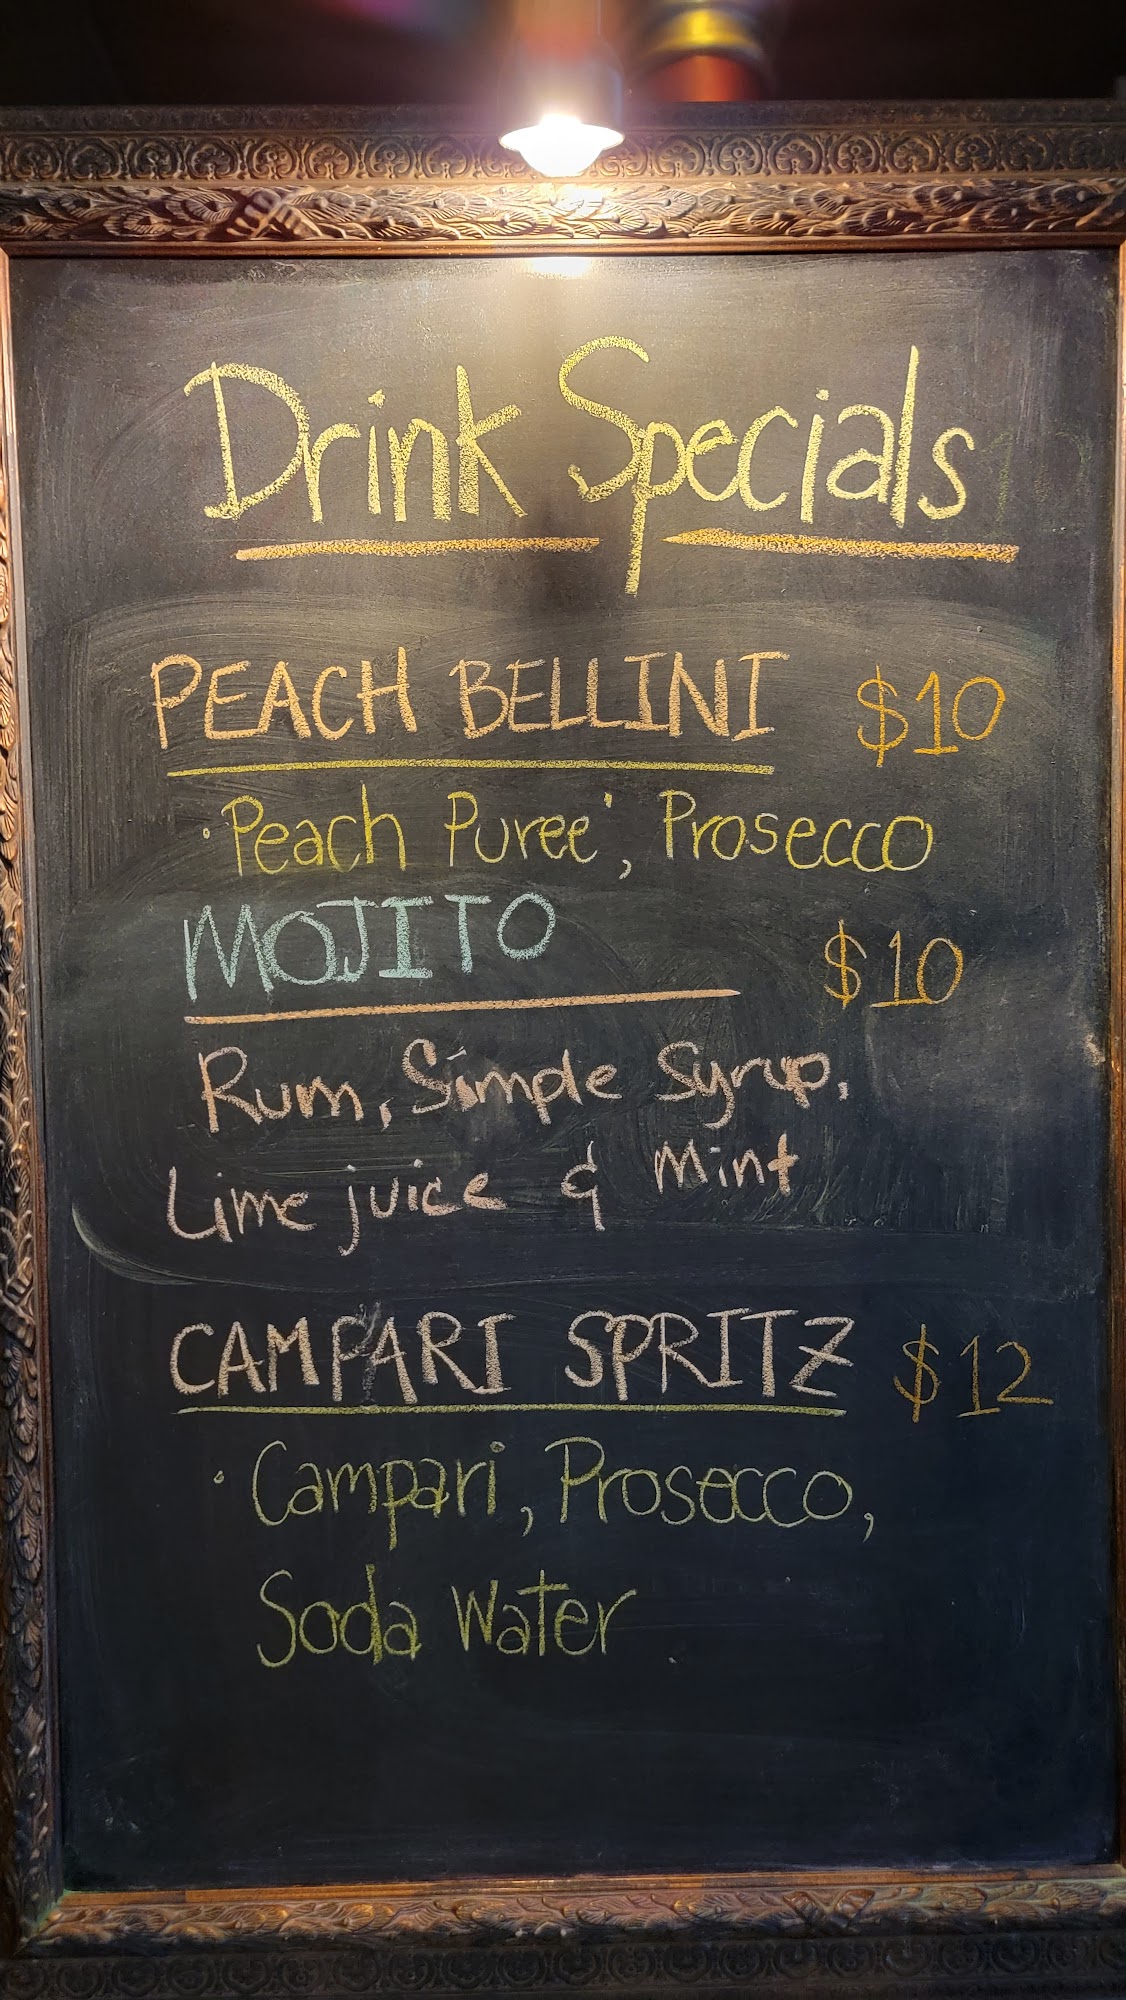 Drink Specials
PEACH BELLINI $10
· Peach Puree', Prosecco
MOJITO $10
Rum, Simple Syrup,
Lime juice & Mint
CAMPARI SPRITZ $12
· Campari, Prosecco,
Soda Water